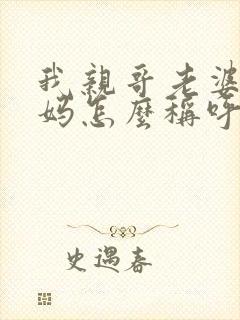 我親哥老婆
媽怎麼稱呼
史遇春